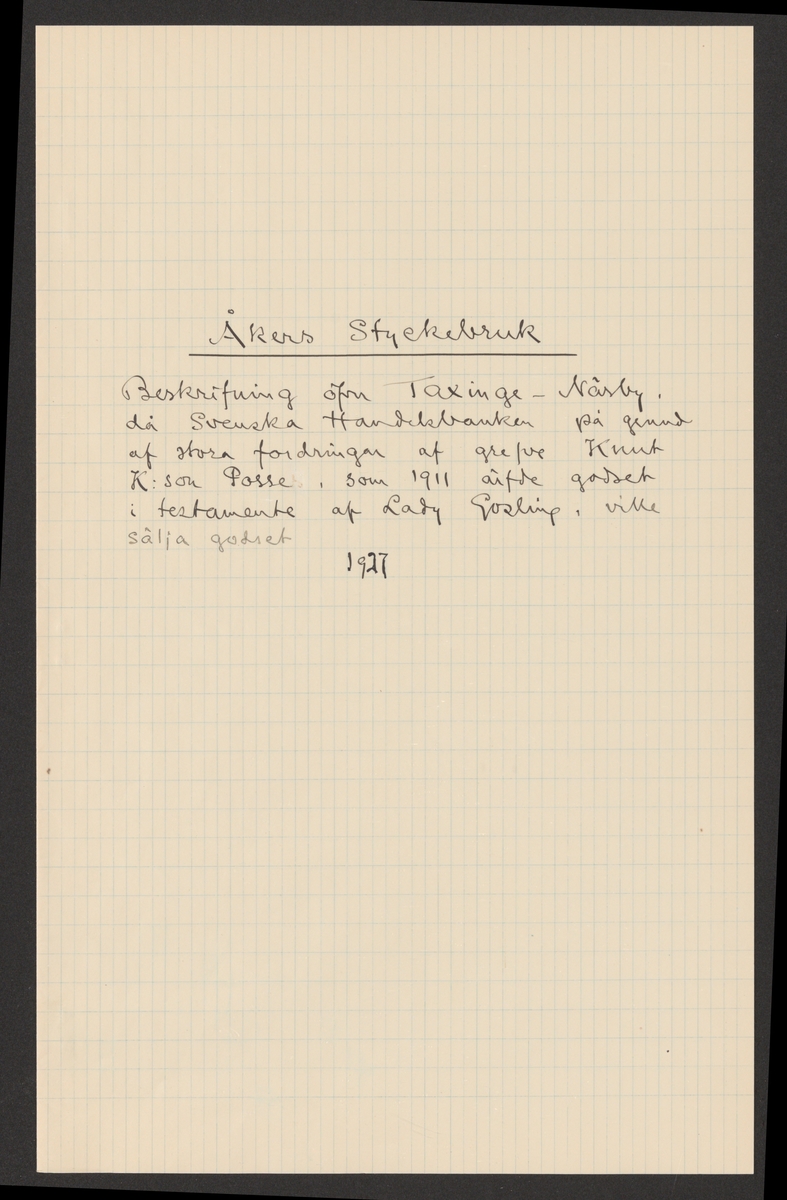 Åkers Styckebruk
Beskrifning öfver Taxinge - Näsby,
då Svenska Handelsbanken på grund
af stora fordringar af grefve Knut
K:son Posse, som 1911 ärfde godset
i testamente af Lady Gosling, ville
sälja godset
1927